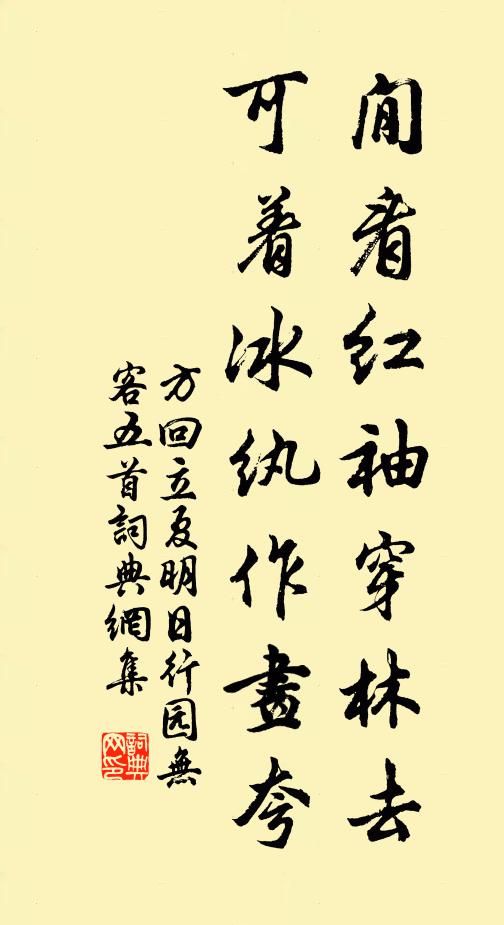 閒看红袖穿林去
可着冰纨作畫夸
方回立夏明日行园無
客五首詞典網集
詞典
网印